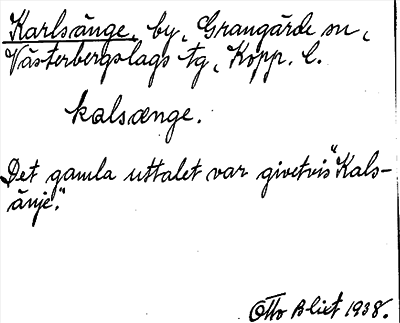 Karlsänge, by, Grangärde sn,
Västerbergslags tg, Kopp. l.
kalsænge.
Det gamla uttalet var givetvis "Kals-
änje".
Otto Blixt 1938.